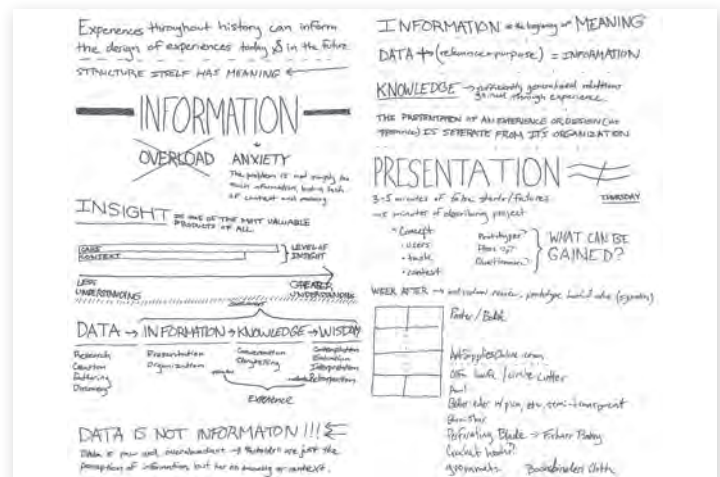 Experiences throughout history can inform
the design of experiences today & in the future
STRUCTURE ITSELF HAS MEANING
INFORMATION
OVERLOAD ANXIETY
The problem is not simply too
much information, but a lack
of context and meaning
INSIGHT IS ONE OF THE MOST VALUABLE
PRODUCTS OF ALL
CONTEXT
LEVEL OF
INSIGHT
LESS
UNDERSTANDING
GREATER
UNDERSTANDING
DATA → INFORMATION → KNOWLEDGE → WISDOM
Research
Creation
Gathering
Discovery
Presentation
Organization
Conversation
Storytelling
Contemplation
Evaluation
Interpretation
Retrospection
Experience
DATA IS NOT INFORMATON!!!
Data is raw and overabundant are just the
perception of information, but has no meaning or context.
INFORMATION is the beginning of MEANING
DATA + (relevance + purpose) = INFORMATION
KNOWLEDGE → sufficiently generalized solutions
gained through experience
THE PRESENTATION OF AN EXPERIENCE OR DESIGN
IS SEPERATE FROM ITS ORGANIZATION
PRESENTATION
THURSDAY
3-5 minutes of false starts/failures
5 minutes of describing project
• Concept
• users
• task
• context
Prototypes?
How?
Questionnaire?
WHAT CAN BE
GAINED?
WEEK AFTER → individual review, prototype
Poster/Book
ArtSuppliesOnline.com
Olfa knife / circle cutter
Awl
semi-transparent
Perforating Blade → Fisher Baby
Crochet hooks?
grommets Bookbinders Cloth